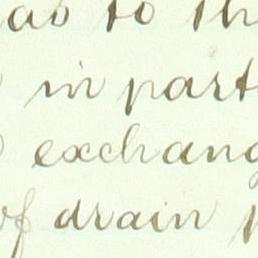 as to th
in part
exchang
of drain